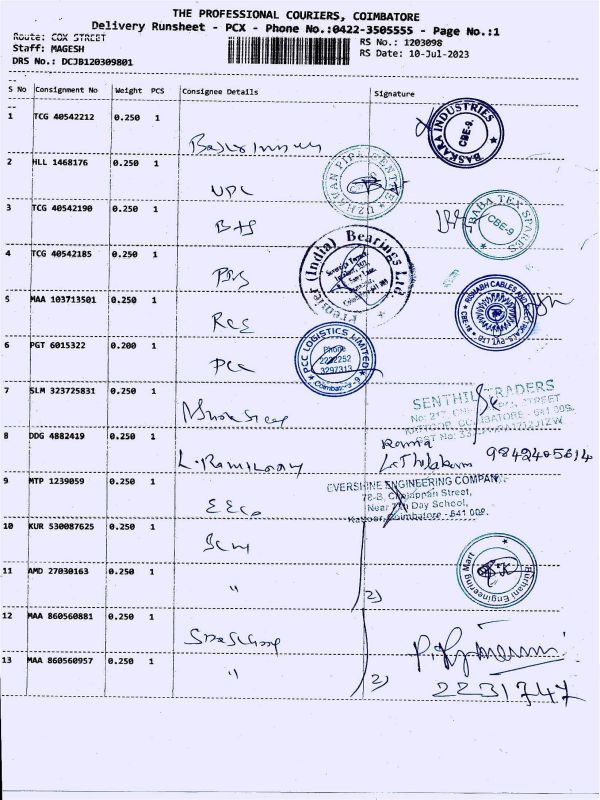 THE PROFESSIONAL COURIERS, COIMBATORE
Delivery Runsheet - PCX - Phone No.:0422-3505555 - Page No.:1
Route: COX STREET
RS No.: 1203098
Staff: MAGESH
RS Date: 10-Jul-2023
DRS No.: DCJB120309801
S No Consignment No Weight PCS Consignee Details Signature
1 TCG 40542212 0.250 1
BASKARA INDUSTRIES
CBE-9.
2 HLL 1468176 0.250 1 UPC
UZHAVAN PIPE CENTRE
3 TCG 40542190 0.250 1 BTS
BABA TEX SPARES
CBE-9
4 TCG 40542185 0.250 1
Premier (India) Bearings Ltd
5 MAA 103713501 0.250 1
RISHABH CABLES AND ELECTRICALS PVT LTD
CBE
6 PGT 6015322 0.200 1 PCC
PCC LOGISTICS LIMITED
Phone
2292252
3297313
Coimbatore - 9
7 SLM 323725831 0.250 1
SENTHIL TRADERS
No: 217, STREET
KATTOOR, COIMBATORE - 641 009.
GST No:
8 DDG 4882419 0.250 1 L. Ramilaray
9842405614
9 MTP 1239059 0.250 1 EECo
EVERSHINE ENGINEERING COMPANY
78-B, Chojappan Street,
Near 7th Day School,
Kattoor, Coimbatore - 641 009.
10 KUR 530087625 0.250 1
11 AMD 27030163 0.250 1 " 2)
Burhani Engineering Mart
12 MAA 860560881 0.250 1
13 MAA 860560957 0.250 1 " 2)
2231747